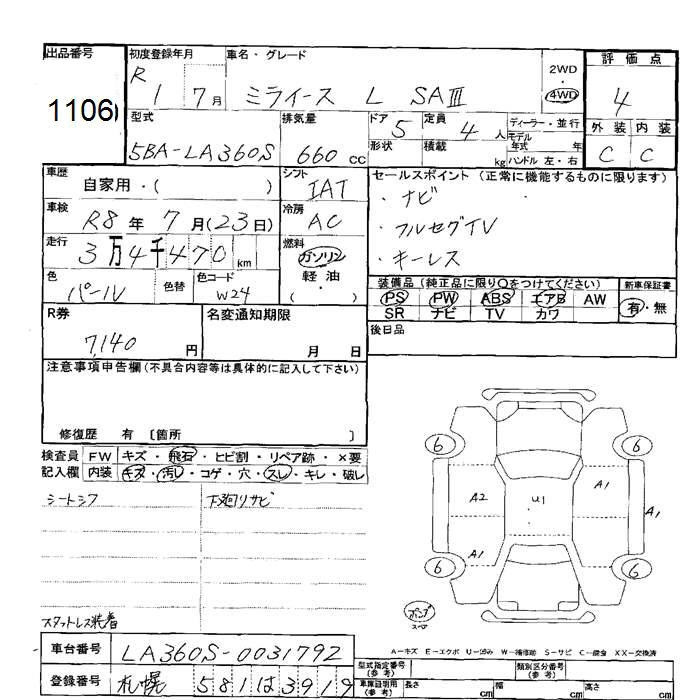 出品番号 初度登録年月 車名・グレード 評価点
1106 R 1 7月 ミライース L SAⅢ 2WD・4WD 4
型式 排気量 ドア 5 定員 4人 ディーラー・並行 外装 内装
5BA-LA360S 660 CC 形状 積載 kg モデル年式 年 ハンドル 左・右 C C
車歴 自家用・( ) シフト IAT セールスポイント (正常に機能するものに限ります)
車検 R8年 7月(23日) 冷房 AC ・ナビ
・フルセグTV
走行 3万4千470km 燃料 ガソリン 軽油 ・( ) ・キーレス
色 パール 色替 色コード W24 装備品 (純正品に限り○をつけてください) 新車保証書
PS PW ABS エアB AW 有・無
SR ナビ TV カワ
R券 名変通知期限 後日品
7,140 円 月 日
注意事項申告欄 (不具合内容等は具体的に記入して下さい)
修復歴 有 〔箇所 〕
検査員 FW キズ・飛石・ヒビ割・リペア跡・×要
記入欄 内装 キズ・汚レ・コゲ・穴・スレ・キレ・破レ
シートシワ 下廻リサビ
6 6
A2 U1 A1 A1
A1
6 6
スタットレス装着
A-キズ E-エクボ U-凹み W-補修跡 S-サビ C-腐食 XX-交換済
車台番号 LA360S-0031792 型式指定番号 (参考) 類別区分番号 (参考)
登録番号 札幌 581は3919 車庫証明用 (参考) 長さ cm 幅 cm 高さ cm